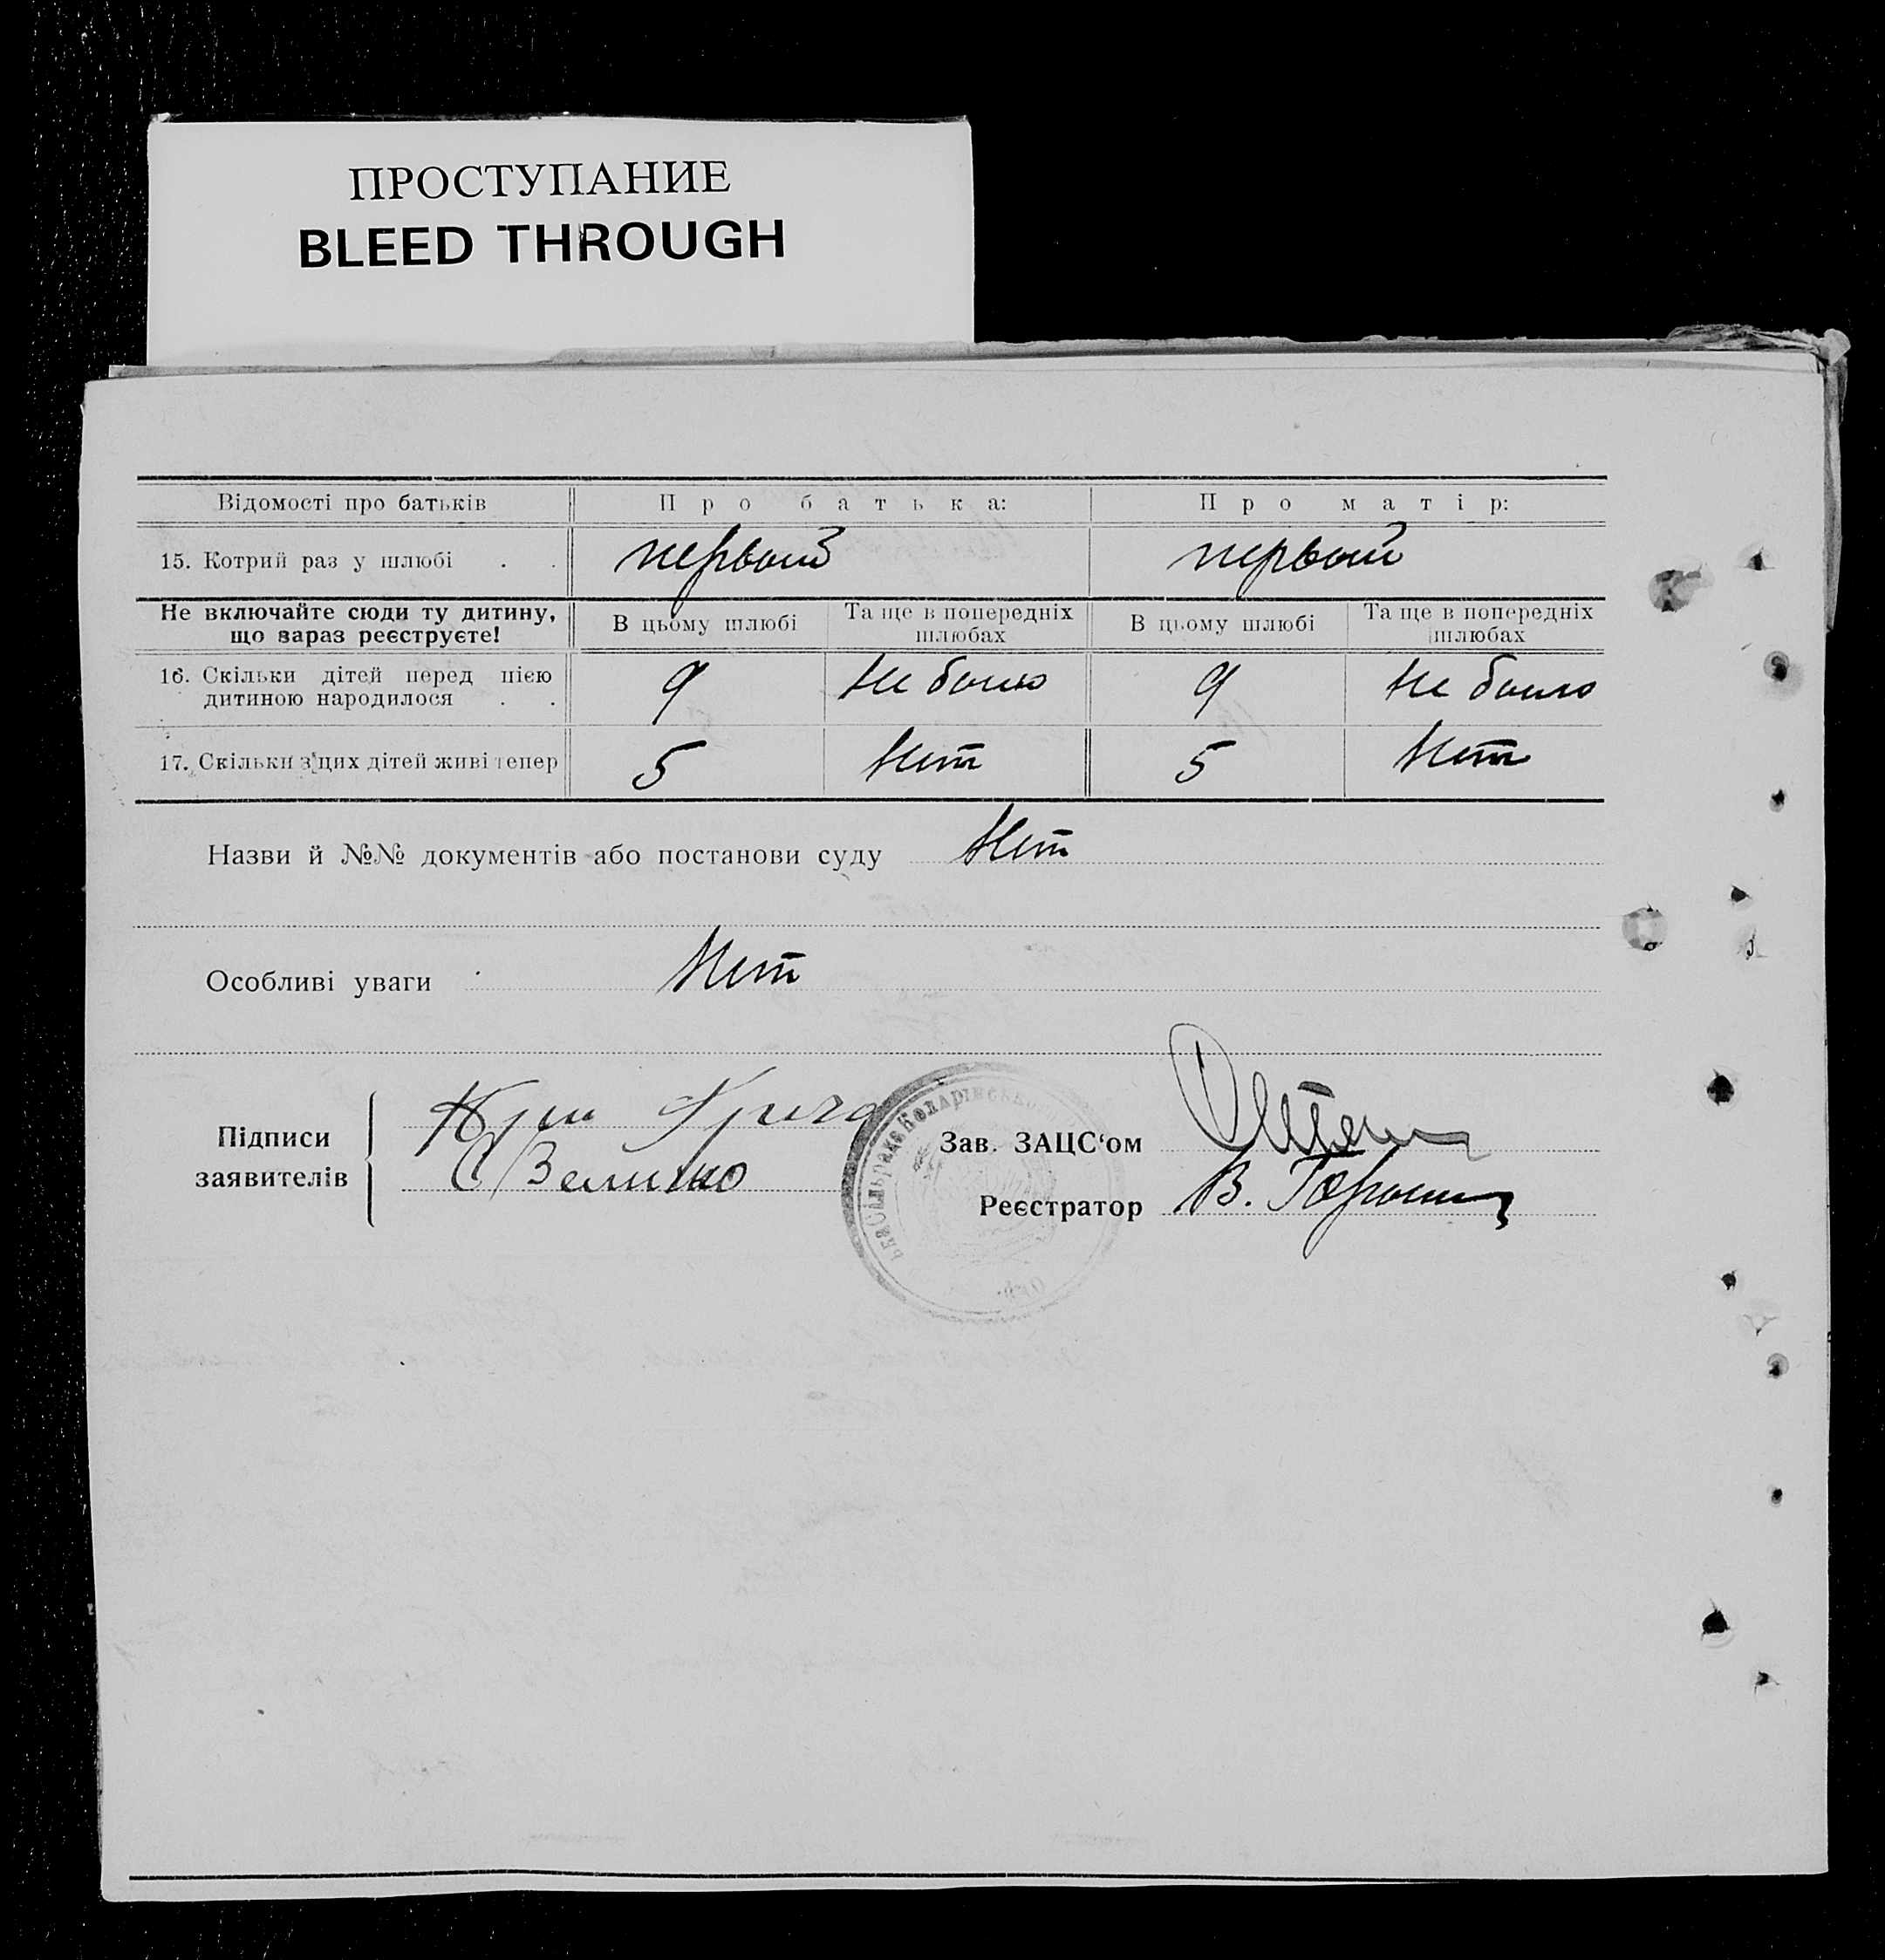 ПРОСТУПАНИЕ
BLEED THROUGH
Відомості про батьків Про батька: Про матір:
15. Котрий раз у шлюбі . . первый первый
Не включайте сюди ту дитину, що зараз реєструєте! В цьому шлюбі Та ще в попередніх шлюбах В цьому шлюбі Та ще в попередніх шлюбах
16. Скільки дітей перед цією дитиною народилося . . 9 не было 9 не было
17. Скільки з цих дітей живі тепер 5 Нет 5 Нет
Назви й №№ документів або постанови суду Нет
Особливі уваги Нет
Підписи заявителів
С Величко
Зав. ЗАЦС‘ом
Реєстратор В.